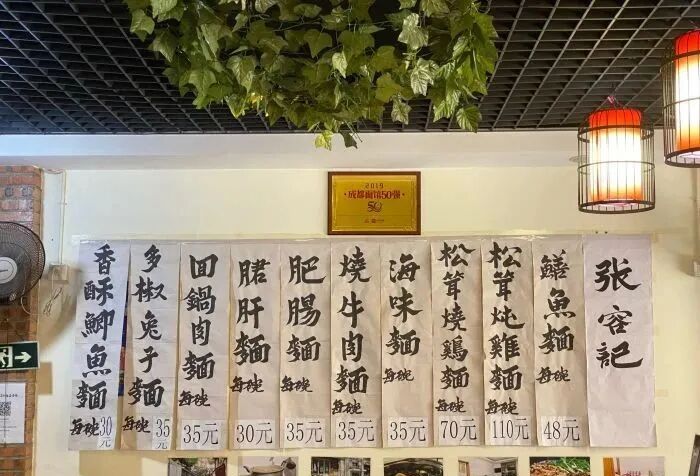 2019
成都面馆50强
50
张容記
鱔魚麵 每碗 48元
松茸炖雞麵 每碗 110元
松茸燒鷄麵 每碗 70元
海味麵 每碗 35元
燒牛肉麵 每碗 35元
肥腸麵 每碗 35元
䐗肝麵 每碗 30元
回鍋肉麵 每碗 35元
多椒兔子麵 每碗 35元
香酥鯽魚麵 每碗 30元